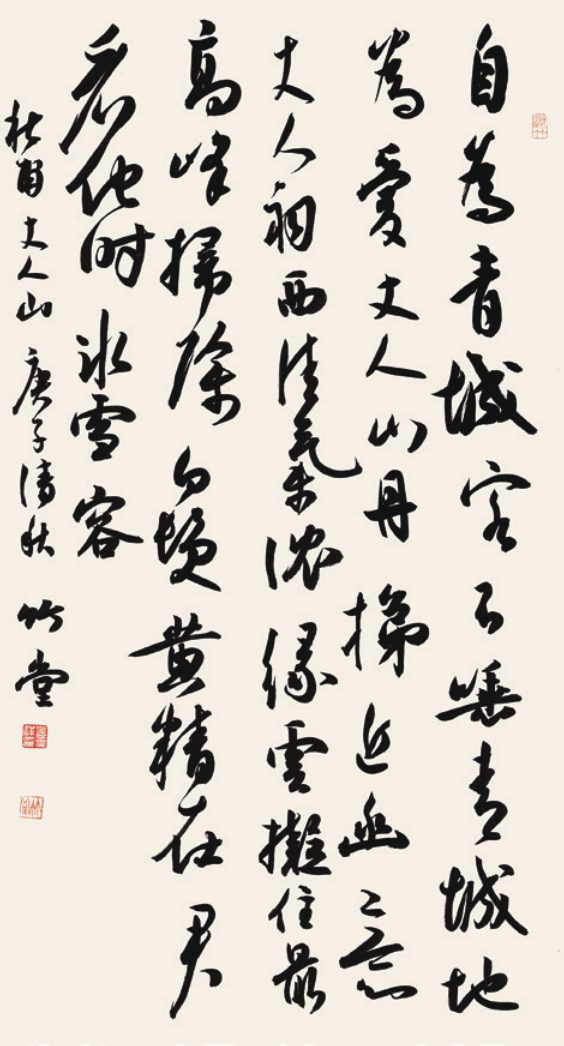 自為青城客不唾青城地
為愛丈人山丹梯近幽意
丈人祠西佳氣濃緣雲擬住最
高峰掃除白髮黃精在君
看他時冰雪容
杜甫丈人山 庚子清秋 竹堂